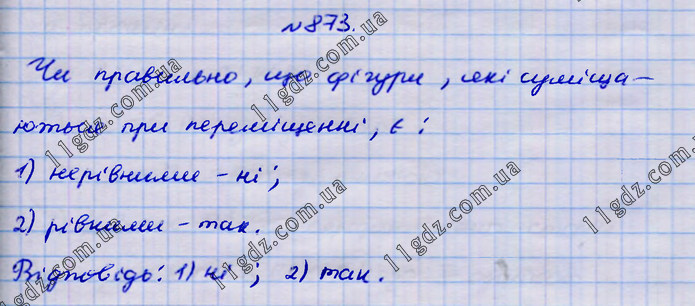 №873.
Чи правильно, що фігури, які суміща-
ються при переміщенні, є:
1) нерівними - ні;
2) рівними - так.
Відповідь: 1) ні; 2) так.
11gdz.com.ua
11gdz.com.ua
11gdz.com.ua
11gdz.com.ua
11gdz.com.ua
11gdz.com.ua
11gdz.com.ua